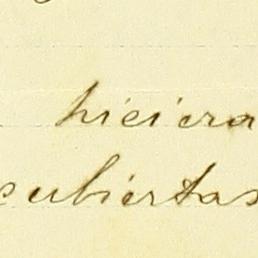 hiciera
cubiertas